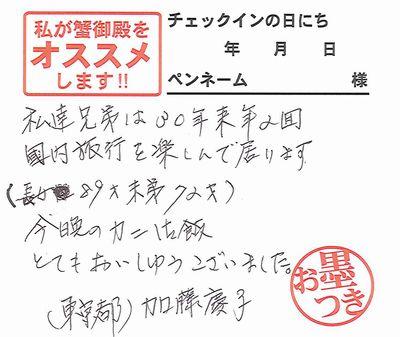 私が蟹御殿を
オススメ
します!!
チェックインの日にち
年 月 日
ペンネーム 様
私達兄弟は30年来年2回
國内旅行を楽しんで居ります
89才末弟72才)
今晩のカニ御飯
とてもおいしゅうございました。
(東京都)加藤慶子
お墨つき